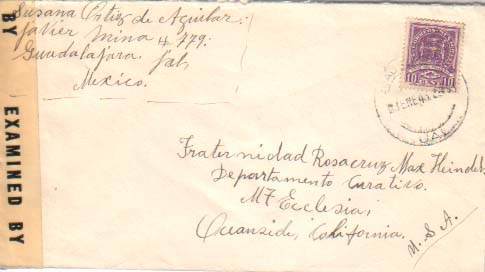 BY
EXAMINED BY
Susana Ortiz de Aguilar.
Javier Mina # 779.
Guadalajara. Jal.
Mexico.
10 10
ENE
JAL
Fraternidad Rosacruz Max Heindel.
Departamento Curativo.
MT Ecclesia,
Oceanside, California.
U.S.A.